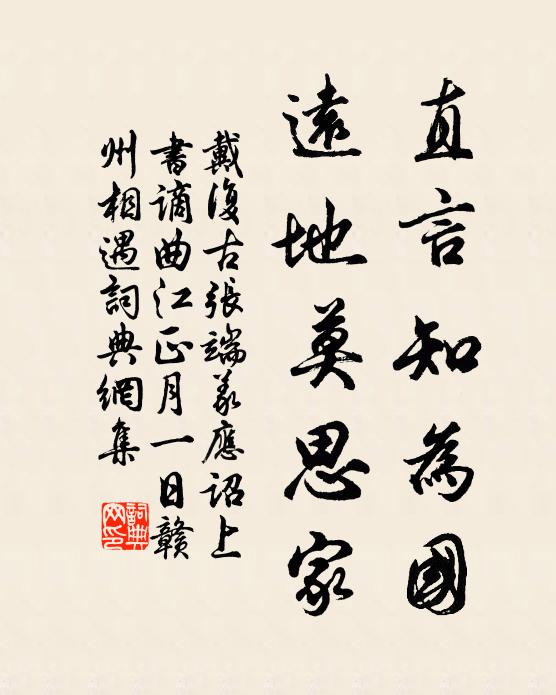 直言知為國
遠地莫思家
戴復古張端義應詔上
書謫曲江正月一日贛
州相遇詞典網集
詞典网印